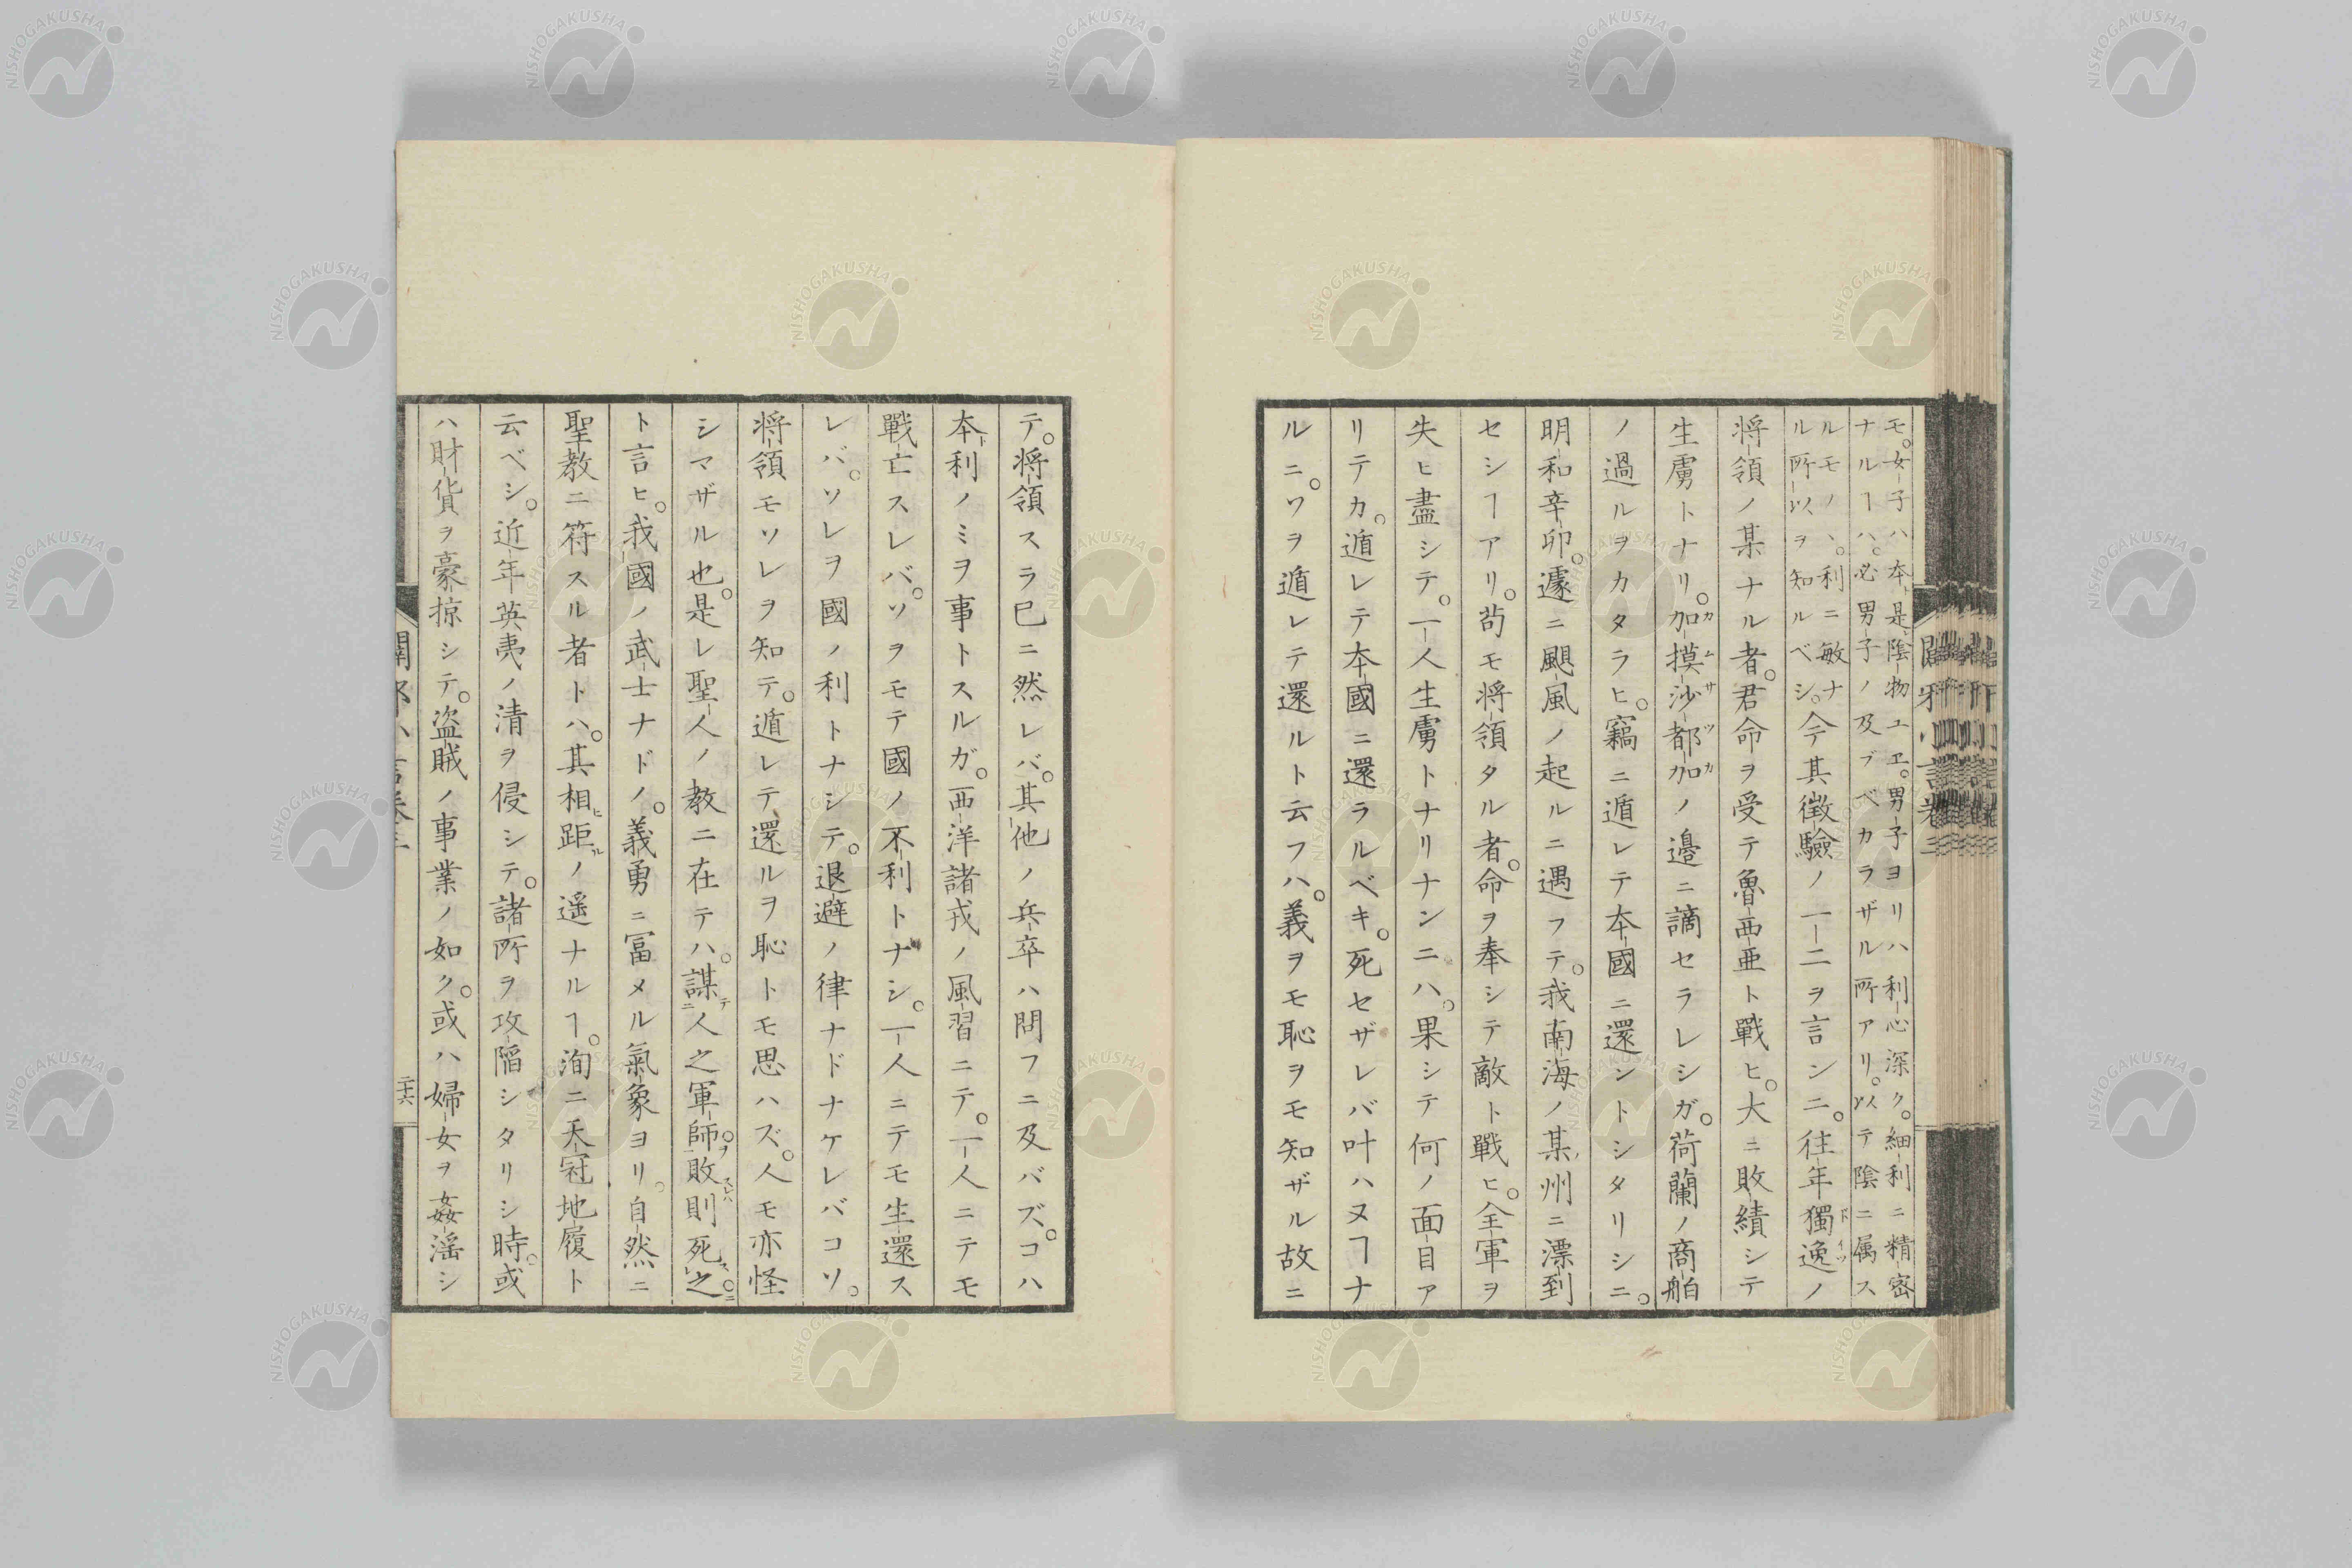 モ。女子ハ本ト是陰物ユヱ。男子ヨリハ利心深ク。細利ニ精密
ナルヿハ。必男子ノ及ブベカラザル所アリ。以テ陰ニ属ス
ルモノハ。利ニ敏ナ
ル所以ヲ知ルベシ。今其徴驗ノ一二ヲ言ンニ。往年獨逸ノ
将領ノ某ナル者。君命ヲ受テ魯西亜ト戰ヒ。大ニ敗績シテ
生虜トナリ。加摸沙都加ノ邉ニ謫セラレシガ。荷蘭ノ商舶
ノ過ルヲカタラヒ。竊ニ遁レテ本國ニ還ントシタリシニ。
明和辛卯。遽ニ颶風ノ起ルニ遇フテ。我南海ノ某州ニ漂到
セシヿアリ。苟モ将領タル者。命ヲ奉シテ敵ト戰ヒ。全軍ヲ
失ヒ盡シテ。一人生虜トナリナンニハ。果シテ何ノ面目ア
リテカ。遁レテ本國ニ還ラルベキ。死セザレバ叶ハヌヿナ
ルニ。ソヲ遁レテ還ルト云フハ。義ヲモ恥ヲモ知ザル故ニ
テ。将領スラ已ニ然レバ。其他ノ兵卒ハ問フニ及バズ。コハ
本利ノミヲ事トスルガ。西洋諸戎ノ風習ニテ。一人ニテモ
戰亡スレバ。ソヲモテ國ノ不利トナシ。一人ニテモ生還ス
レバ。ソレヲ國ノ利トナシテ。退避ノ律ナドナケレバコソ。
将領モソレヲ知テ。遁レテ還ルヲ恥トモ思ハズ。人モ亦怪
シマザル也。是レ聖人ノ教ニ在テハ。謀人之軍師敗則死之
ト言ヒ。我國ノ武士ナドノ。義勇ニ冨メル氣象ヨリ。自然ニ
聖教ニ符スル者トハ。其相距ノ遥ナルヿ。洵ニ天冠地履ト
云ベシ。近年英夷ノ清ヲ侵シテ。諸所ヲ攻陥シタリシ時。或
ハ財貨ヲ豪掠シテ。盗賊ノ事業ノ如ク。或ハ婦女ヲ姦淫シ
二十六
NISHOGAKUSHA